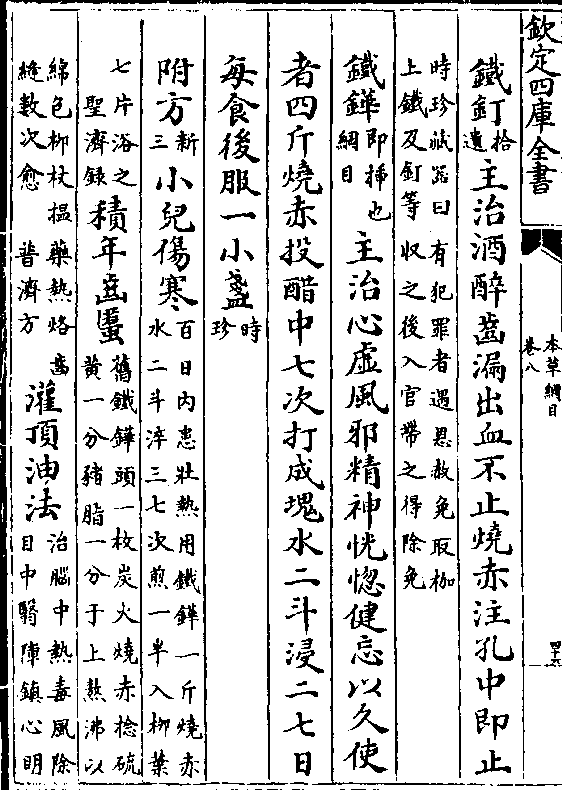 欽定四庫全書
本草綱目
卷八
鐵釘拾遺主治酒醉齒漏出血不止燒赤注孔中即止
時珍藏器曰有犯罪者遇恩赦免取枷
上鐵及釘等收之後入官帶之得除免
鐵鏵綱目即插也主治心虛風邪精神恍惚健忘以久使
者四斤燒赤投醋中七次打成塊水二斗浸二七日
每食後服一小盞時珍
附方新三小兒傷寒百日內患壯熱用鐵鏵一斤燒赤
水二斗淬三七次煎一半入柳葉
七片浴之
聖濟錄積年齒䘌舊鐵鏵頭一枚炭火燒赤捻硫
黃一分豬脂一分于上熬沸以
綿色柳杖揾藥熱烙齒
縫數次愈 普濟方灌頂油法治腦中熱毒風除
目中翳障鎮心明